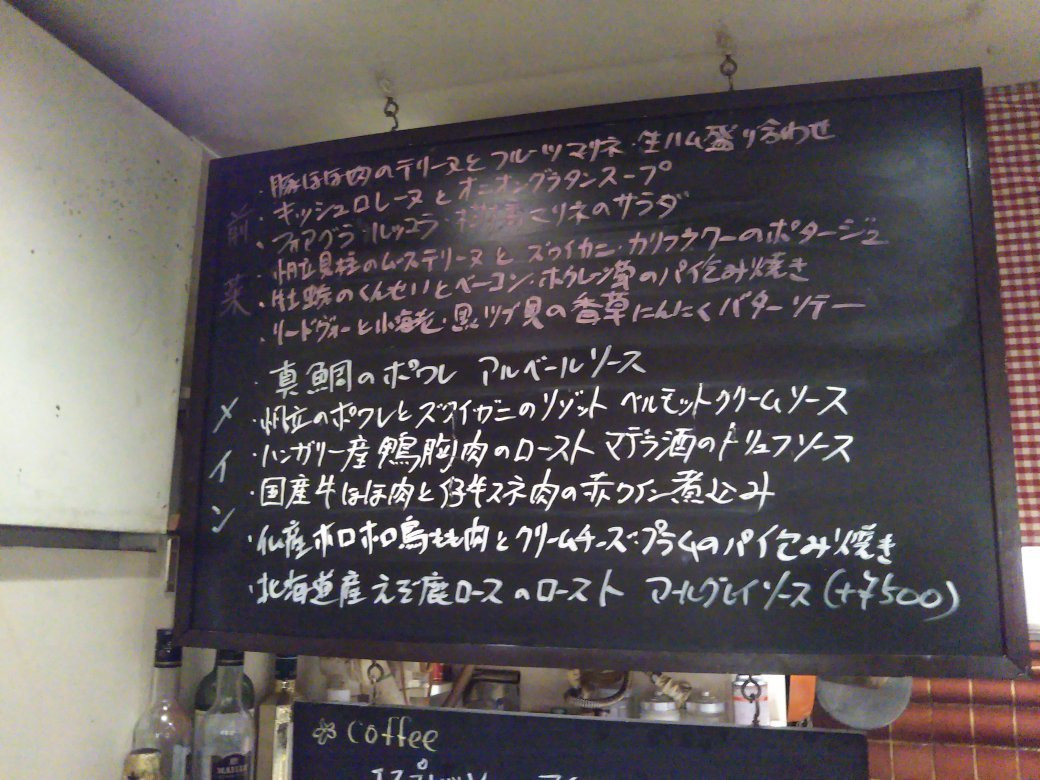 前菜
・豚ほほ肉のテリーヌとフルーツマリネ・生ハム盛り合わせ
・キッシュロレーヌとオニオングラタンスープ
・フォアグラ・ルッコラ マリネのサラダ
・帆立貝柱のムーステリーヌとズワイカニ・カリフラワーのポタージュ
・牡蛎のくんせいとベーコン・ホウレン草のパイ包み焼き
・リードヴォーと小海老・黒ツブ貝の香草にんにくバターソテー
メイン
・真鯛のポワレ アルベールソース
・帆立のポワレとズワイガニのリゾット ベルモットクリームソース
・ハンガリー産鴨胸肉のロースト マデラ酒のトリュフソース
・国産牛ほほ肉と仔牛スネ肉の赤ワイン煮込み
・仏産ホロホロ鳥もも肉とクリームチーズ・プラムのパイ包み焼き
・北海道産えぞ鹿ロースのロースト アールグレイソース(+¥500)
Coffee